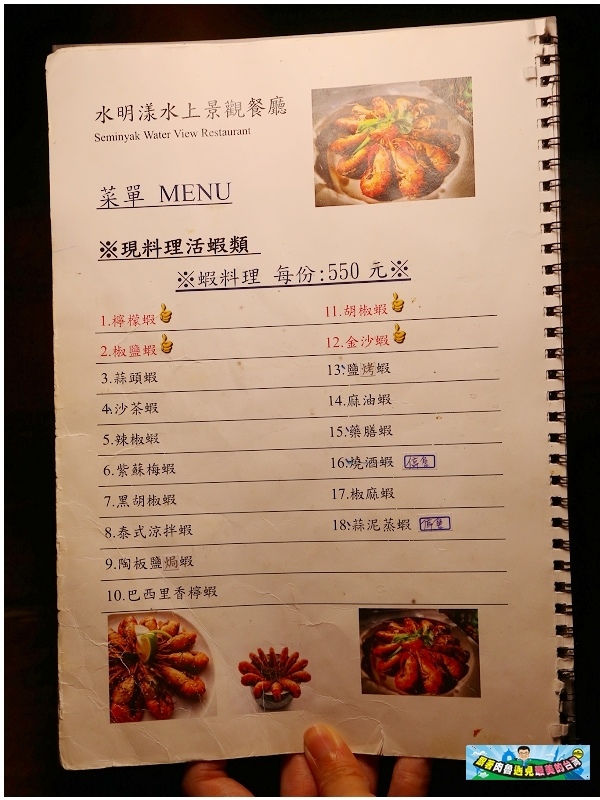 水明漾水上景觀餐廳
Seminyak Water View Restaurant
菜單 MENU
※現料理活蝦類
※蝦料理 每份:550 元※
1.檸檬蝦
2.椒鹽蝦
3.蒜頭蝦
4.沙茶蝦
5.辣椒蝦
6.紫蘇梅蝦
7.黑胡椒蝦
8.泰式涼拌蝦
9.陶板鹽焗蝦
10.巴西里香檸蝦
11.胡椒蝦
12.金沙蝦
13.鹽烤蝦
14.麻油蝦
15.藥膳蝦
16.燒酒蝦 停售
17.椒麻蝦
18.蒜泥蒸蝦 停售
跟著肉魯遇見最美的台灣